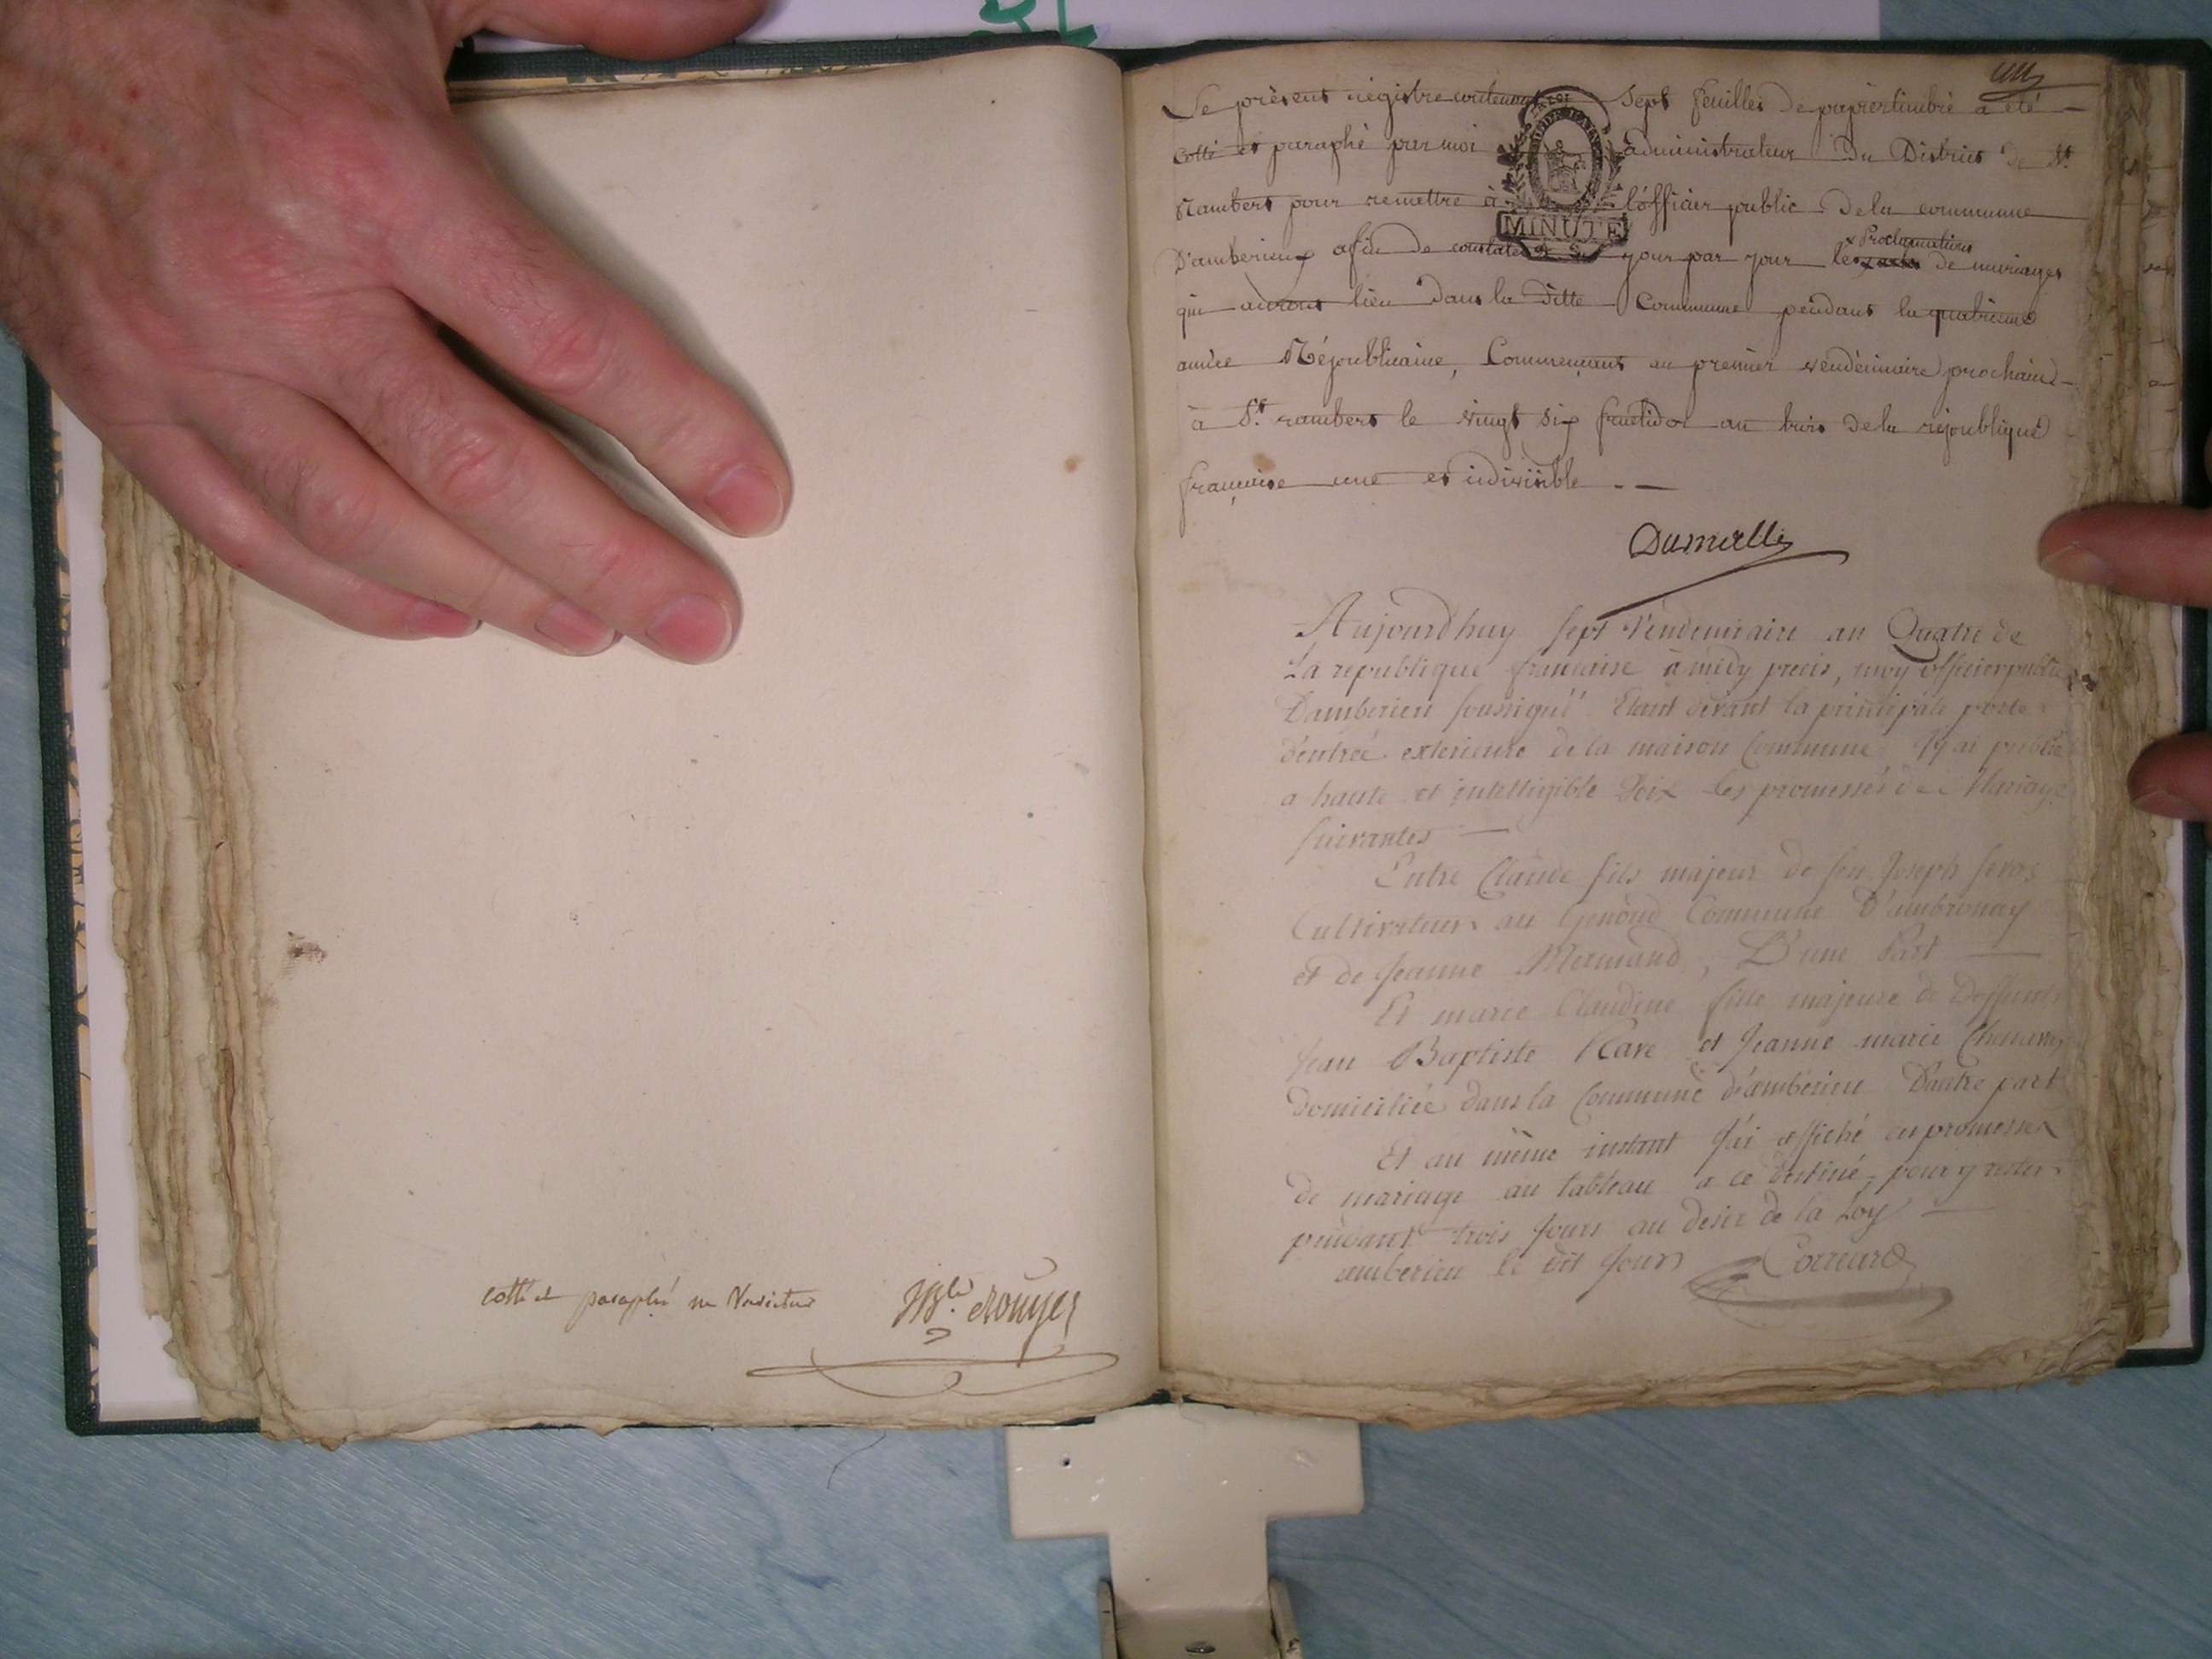 cotté et paraphé ne Varietur
Le présent régistre contenant sept feuilles de papier timbré a été
cotté et paraphé par moi administrateur du District de St.
Rambert pour remettre à l'officier public de la commune
MINUTE
D'amberieux afin de constater jour par jour les x Proclamations de mariages
qui auront lieu dans la ditte Commune pendant la quatrieme
année Républicaine, Commençant au premier vendémiaire prochain
à St. rambert le vingt six fructidor an trois de la république
française une et indivisible
Aujourdhuy sept Vendemiaire an Quatre de
La republique francaise à midy precis, moy officier public
D'amberieu soussigné Etant devant la principale porte
d'entrée exterieure de la maison Commune J'y ai publié
a haute et intelligible Voix les promesses de Mariage
suivantes
Entre Claude fils majeur de feu Joseph
Cultivateur au Genoud Commune D'ambronay
et de Jeanne Mermand, D'une Part
Et marie Claudine fille majeure de Deffunts
Jean Baptiste Rave et Jeanne marie
Domiciliée dans la Commune d'amberieu D'autre part
Et au même instant J'ai affiché ces promesses
de mariage au tableau a ce destiné, pour y rester
pendant trois Jours au desir de la Loy
amberieu le dit Jour